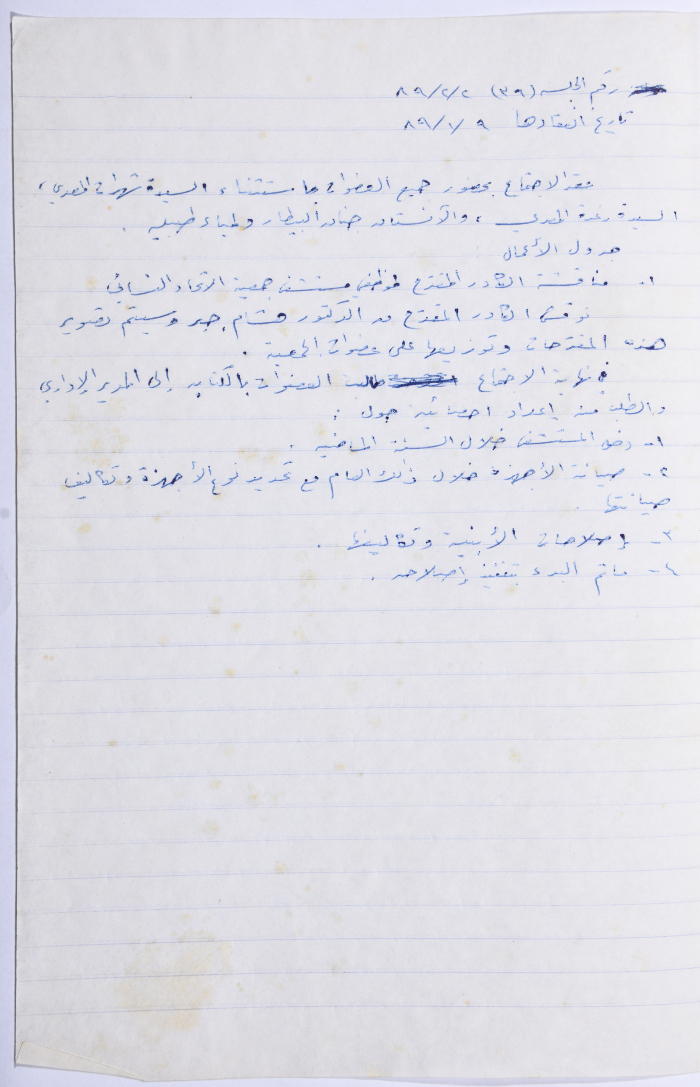 رقم الجلسه (٣٩) ٨٩/٢/٢
تاريخ انعقادها ٨٩/١/٩
عقد الاجتماع بحضور جميع العضوات باستثناء السيدة المصري،
السيدة رغدة المصري، والآنستان جنان البيطار ولمياء طبيله.
جدول الأعمال
١. مناقشة الكادر المقترح لموظفي مستشفى جمعية الاتحاد النسائي
نوقش الكادر المقترح من الدكتور هشام جبر وسيتم تصوير
هذه المقترحات وتوزيعها على عضوات الجمعية.
في نهاية الاجتماع طالبت العضوات بالكتابه إلى المدير الإداري
والطلب منه إعداد احصائية حول:
١- دخل المستشفى خلال السنة الماضيه.
٢- صيانة الأجهزة خلال ذلك العام مع تحديد نوع الأجهزة وتكاليف
صيانتها.
٣- إصلاحات الأبنية وتكاليفها.
٤- ماتم البدء بتنفيذ إصلاحه.